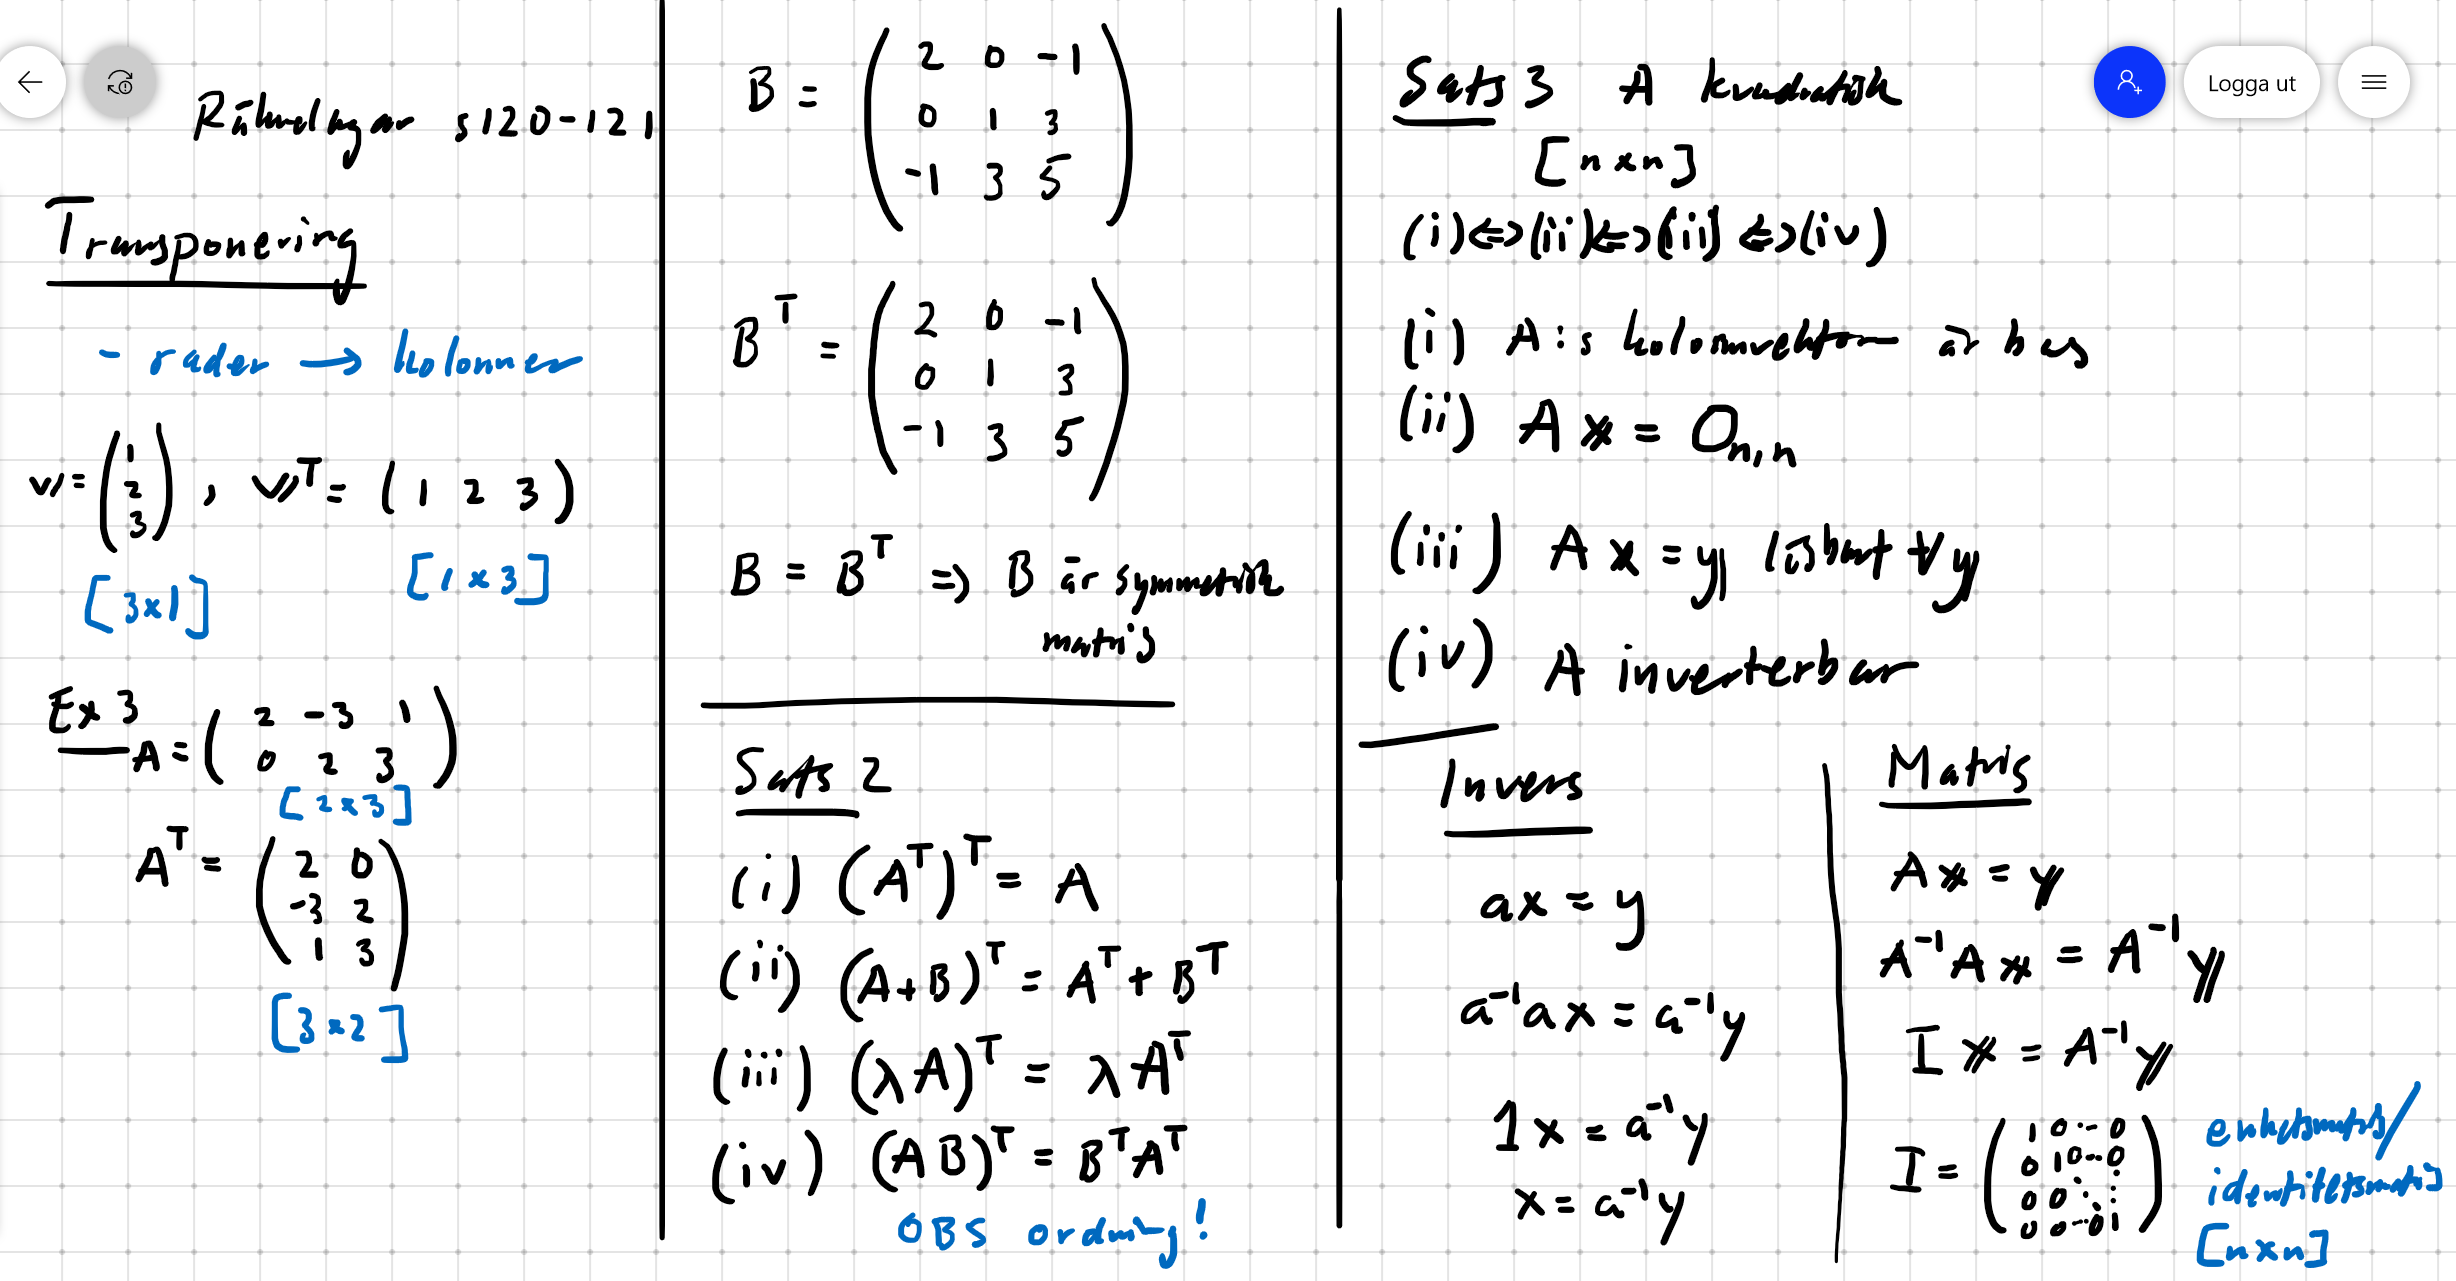 Räknelagar s120-121
Transponering
- rader → kolonner
v = (1 2 3), vᵀ = (1 2 3)
[3x1] [1x3]
Ex 3
A = (2 -3 1
0 2 3)
[2x3]
Aᵀ = (2 0
-3 2
1 3)
[3x2]
B = (2 0 -1
0 1 3
-1 3 5)
Bᵀ = (2 0 -1
0 1 3
-1 3 5)
B = Bᵀ => B är symmetrisk
matris
Sats 2
(i) (Aᵀ)ᵀ = A
(ii) (A+B)ᵀ = Aᵀ + Bᵀ
(iii) (λA)ᵀ = λAᵀ
(iv) (AB)ᵀ = BᵀAᵀ
OBS ordning!
Logga ut
Sats 3 A kvadratisk
[n x n]
(i)⇔(ii)⇔(iii)⇔(iv)
(i) A:s är bas
(ii) A x = 0n,n
(iii) A x = y lösbart ∀ y
(iv) A inverterbar
Invers
ax = y
a⁻¹ax = a⁻¹y
1x = a⁻¹y
x = a⁻¹y
Matris
Ax = y
A⁻¹Ax = A⁻¹y
I x = A⁻¹y
I = (1 0 ... 0
0 1 0 ... 0
0 0 ⋱ ⋮
0 0 ... 0 1)
enhetsmatris/
identitetsmatris
[n x n]